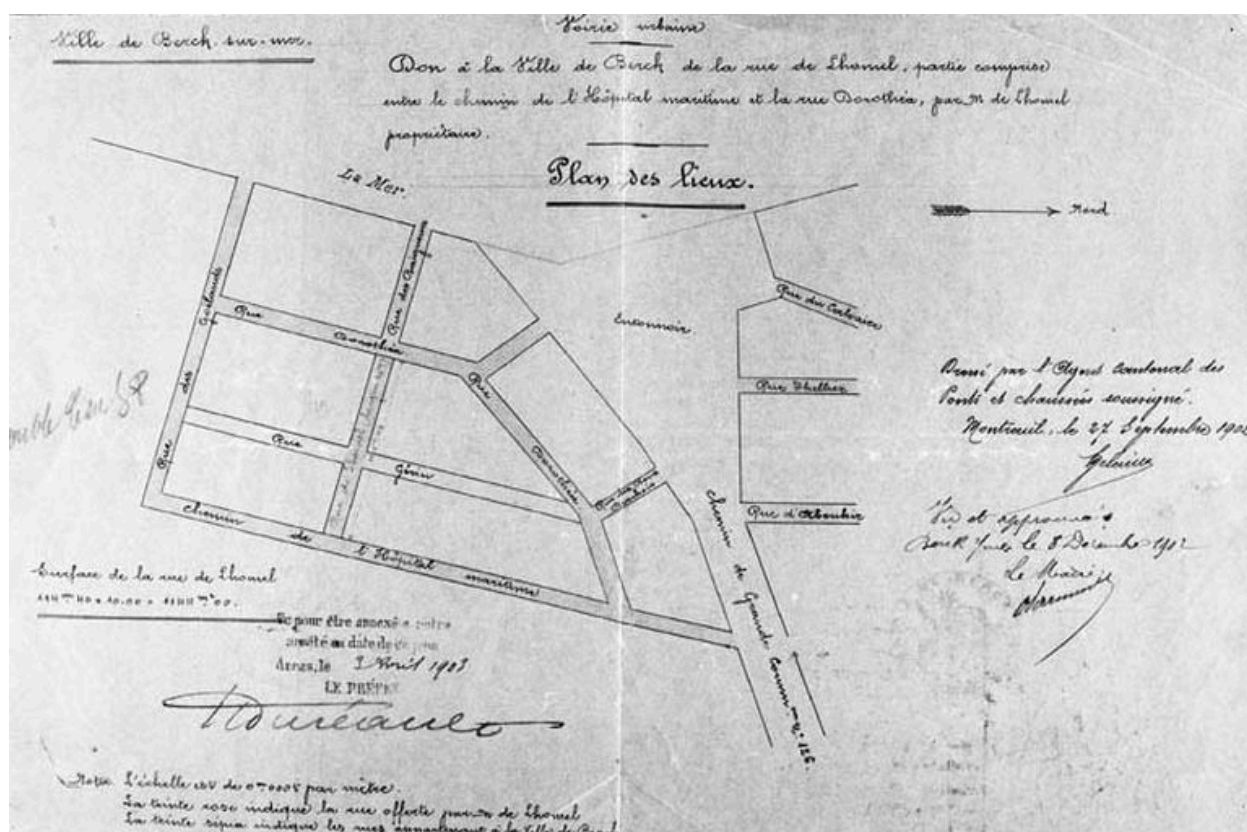 Ville de Berck-sur-mer.
Voirie urbaine
Don à la Ville de Berck de la rue de Lhomel, partie comprise
entre le chemin de l'Hôpital maritime et la rue Dorothéa, par M de Lhomel
propriétaire.
Plan des lieux.
La Mer.
Nord
Rue des Goëlands
Rue Dorothéa
Rue des Baigneurs
Entonnoir
Rue du Calvaire
Rue Thellier
Rue Dorothéa
Rue
Rue
Rue de Lhomel
chemin de l'Hôpital maritime
Chemin de Grande Comm.^on n° 126.
Rue d'
Dressé par l'Agent cantonal des
Ponts et chaussées soussigné.
Montreuil, le 27 Septembre 190
Vu et approuvé
Berck le 8 Décembre 1902
Le Maire
Surface de la rue de Lhomel
Vu pour être annexé à notre
arrêté en date de ce jour
Arras, le 3 Avril 1903
LE PRÉFET
Nota. L'échelle est de 0^m0005 par mètre.
La teinte rose indique la rue offerte par M de Lhomel
La teinte sépia indique les rues appartenant à la Ville de Berck